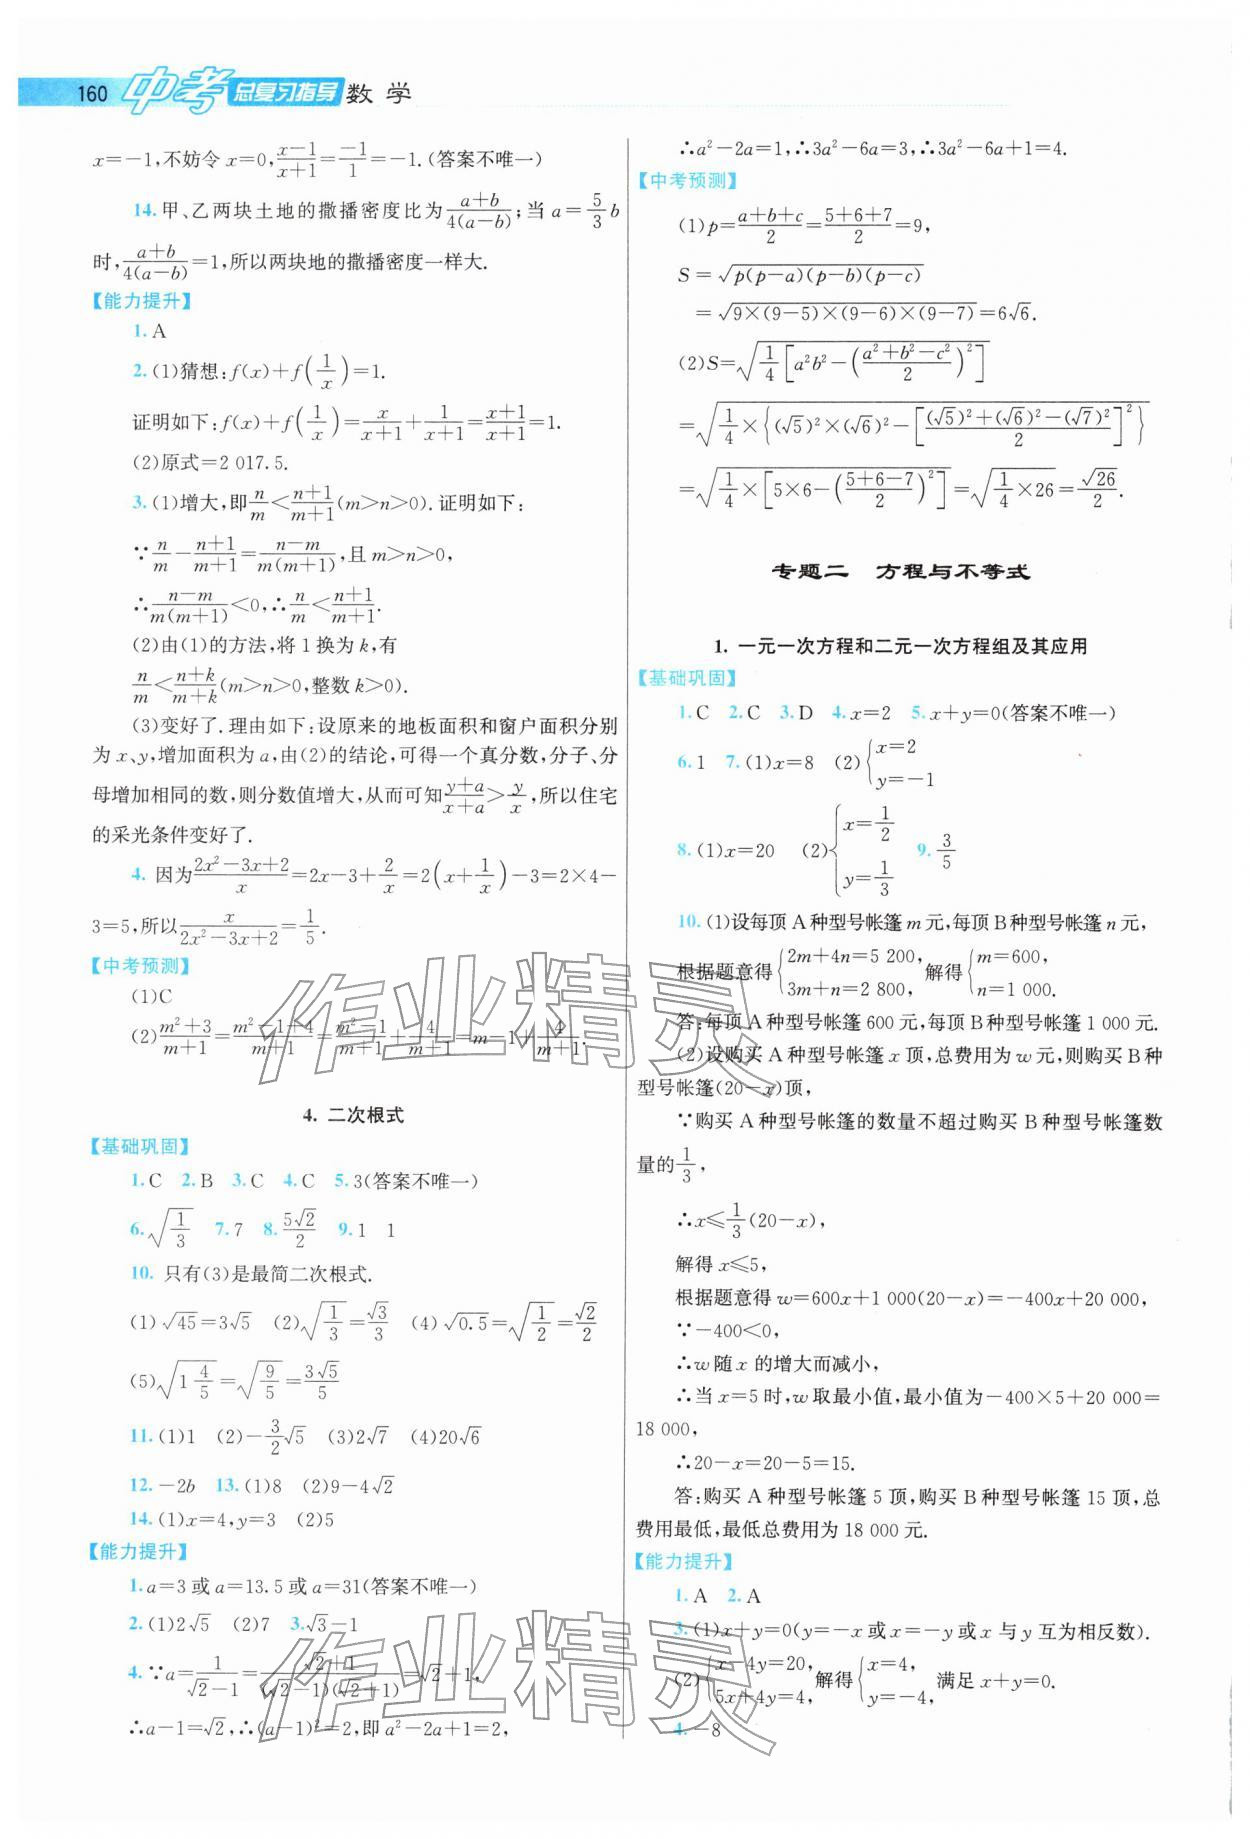 160 中考总复习指导 数学
x=-1,不妨令 x=0,\frac{x-1}{x+1}=\frac{-1}{1}=-1.(答案不唯一)
14.甲、乙两块土地的撒播密度比为\frac{a+b}{4(a-b)};当 a=\frac{5}{3}b
时,\frac{a+b}{4(a-b)}=1,所以两块地的撒播密度一样大.
【能力提升】
1. A
2. (1)猜想:f(x)+f(\frac{1}{x})=1.
证明如下:f(x)+f(\frac{1}{x})=\frac{x}{x+1}+\frac{1}{x+1}=\frac{x+1}{x+1}=1.
(2)原式=2 017.5.
3. (1)增大,即\frac{n}{m}<\frac{n+1}{m+1}(m>n>0).证明如下:
∵\frac{n}{m}-\frac{n+1}{m+1}=\frac{n-m}{m(m+1)},且 m>n>0,
∴\frac{n-m}{m(m+1)}<0,∴\frac{n}{m}<\frac{n+1}{m+1}.
(2)由(1)的方法,将 1 换为 k,有
\frac{n}{m}<\frac{n+k}{m+k}(m>n>0,整数 k>0).
(3)变好了.理由如下:设原来的地板面积和窗户面积分别
为 x、y,增加面积为 a,由(2)的结论,可得一个真分数,分子、分
母增加相同的数,则分数值增大,从而可知\frac{y+a}{x+a}>\frac{y}{x},所以住宅
的采光条件变好了.
4. 因为\frac{2x²-3x+2}{x}=2x-3+\frac{2}{x}=2(x+\frac{1}{x})-3=2×4-
3=5,所以\frac{x}{2x²-3x+2}=\frac{1}{5}.
【中考预测】
(1)C
(2)\frac{m²+3}{m+1}=\frac{m²-1+4}{m+1}=\frac{m²-1}{m+1}+\frac{4}{m+1}=m-1+\frac{4}{m+1}.
4. 二次根式
【基础巩固】
1. C 2. B 3. C 4. C 5. 3(答案不唯一)
6. \sqrt{\frac{1}{3}} 7. 7 8. \frac{5\sqrt{2}}{2} 9. 1 1
10. 只有(3)是最简二次根式.
(1)\sqrt{45}=3\sqrt{5} (2)\sqrt{\frac{1}{3}}=\frac{\sqrt{3}}{3} (4)\sqrt{0.5}=\sqrt{\frac{1}{2}}=\frac{\sqrt{2}}{2}
(5)\sqrt{1\frac{4}{5}}=\sqrt{\frac{9}{5}}=\frac{3\sqrt{5}}{5}
11. (1)1 (2)-\frac{3}{2}\sqrt{5} (3)2\sqrt{7} (4)20\sqrt{6}
12. -2b 13. (1)8 (2)9-4\sqrt{2}
14. (1)x=4,y=3 (2)5
【能力提升】
1. a=3 或 a=13.5 或 a=31(答案不唯一)
2. (1)2\sqrt{5} (2)7 3. \sqrt{3}-1
4. ∵a=\frac{1}{\sqrt{2}-1}=\frac{\sqrt{2}+1}{(\sqrt{2}-1)(\sqrt{2}+1)}=\sqrt{2}+1,
∴a-1=\sqrt{2},∴(a-1)²=2,即 a²-2a+1=2,
∴a²-2a=1,∴3a²-6a=3,∴3a²-6a+1=4.
【中考预测】
(1)p=\frac{a+b+c}{2}=\frac{5+6+7}{2}=9,
S=\sqrt{p(p-a)(p-b)(p-c)}
=\sqrt{9×(9-5)×(9-6)×(9-7)}=6\sqrt{6}.
(2)S=\sqrt{\frac{1}{4}[a²b²-(\frac{a²+b²-c²}{2})²]}
=\sqrt{\frac{1}{4}×{(\sqrt{5})²×(\sqrt{6})²-[\frac{(\sqrt{5})²+(\sqrt{6})²-(\sqrt{7})²}{2}]²}}
=\sqrt{\frac{1}{4}×[5×6-(\frac{5+6-7}{2})²]}=\sqrt{\frac{1}{4}×26}=\frac{\sqrt{26}}{2}.
专题二 方程与不等式
1. 一元一次方程和二元一次方程组及其应用
【基础巩固】
1. C 2. C 3. D 4. x=2 5. x+y=0(答案不唯一)
6. 1 7. (1)x=8 (2){x=2 y=-1
8. (1)x=20 (2){x=\frac{1}{2} y=\frac{1}{3} 9. \frac{3}{5}
10. (1)设每顶 A 种型号帐篷 m 元,每顶 B 种型号帐篷 n 元,
根据题意得{2m+4n=5 200, 3m+n=2 800, 解得{m=600, n=1 000.
答:每顶 A 种型号帐篷 600 元,每顶 B 种型号帐篷 1 000 元.
(2)设购买 A 种型号帐篷 x 顶,总费用为 w 元,则购买 B 种
型号帐篷(20-x)顶,
∵购买 A 种型号帐篷的数量不超过购买 B 种型号帐篷数
量的\frac{1}{3},
∴x≤\frac{1}{3}(20-x),
解得 x≤5,
根据题意得 w=600x+1 000(20-x)=-400x+20 000,
∵-400<0,
∴w 随 x 的增大而减小,
∴当 x=5 时,w 取最小值,最小值为-400×5+20 000=
18 000,
∴20-x=20-5=15.
答:购买 A 种型号帐篷 5 顶,购买 B 种型号帐篷 15 顶,总
费用最低,最低总费用为 18 000 元.
【能力提升】
1. A 2. A
3. (1)x+y=0(y=-x 或 x=-y 或 x 与 y 互为相反数).
(2){x-4y=20, 5x+4y=4, 解得{x=4, y=-4, 满足 x+y=0.
4. -8
作业精灵
作业精灵